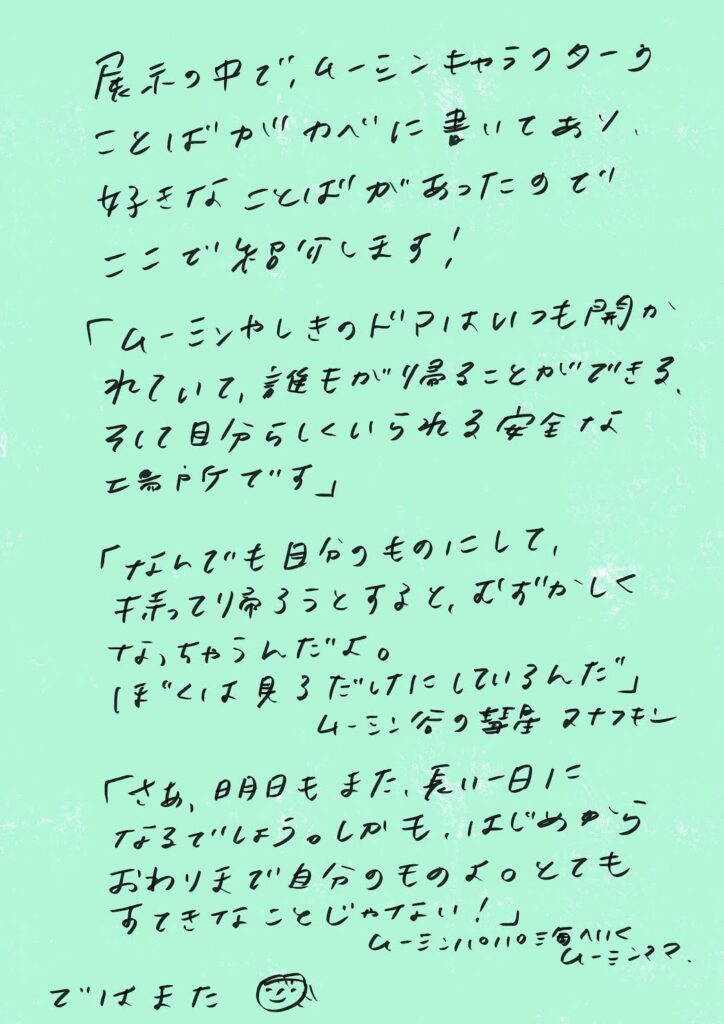 展示の中で、ムーミンキャラクターの
ことばがカベに書いてあり、
好きなことばがあったので
ここで紹介します!
「ムーミンやしきのドアはいつも開か
れていて、誰もが帰ることができる、
そして自分らしくいられる安全な
場所です」
「なんでも自分のものにして、
持って帰ろうとすると、むずかしく
なっちゃうんだよ。
ぼくは見るだけにしているんだ」
ムーミン谷の彗星 スナフキン
「さあ、明日もまた、長い一日に
なるでしょう。しかも、はじめから
おわりまで自分のものよ。とても
すてきなことじゃない!」
ムーミンパパ海へいく
ムーミンママ.
ではまた